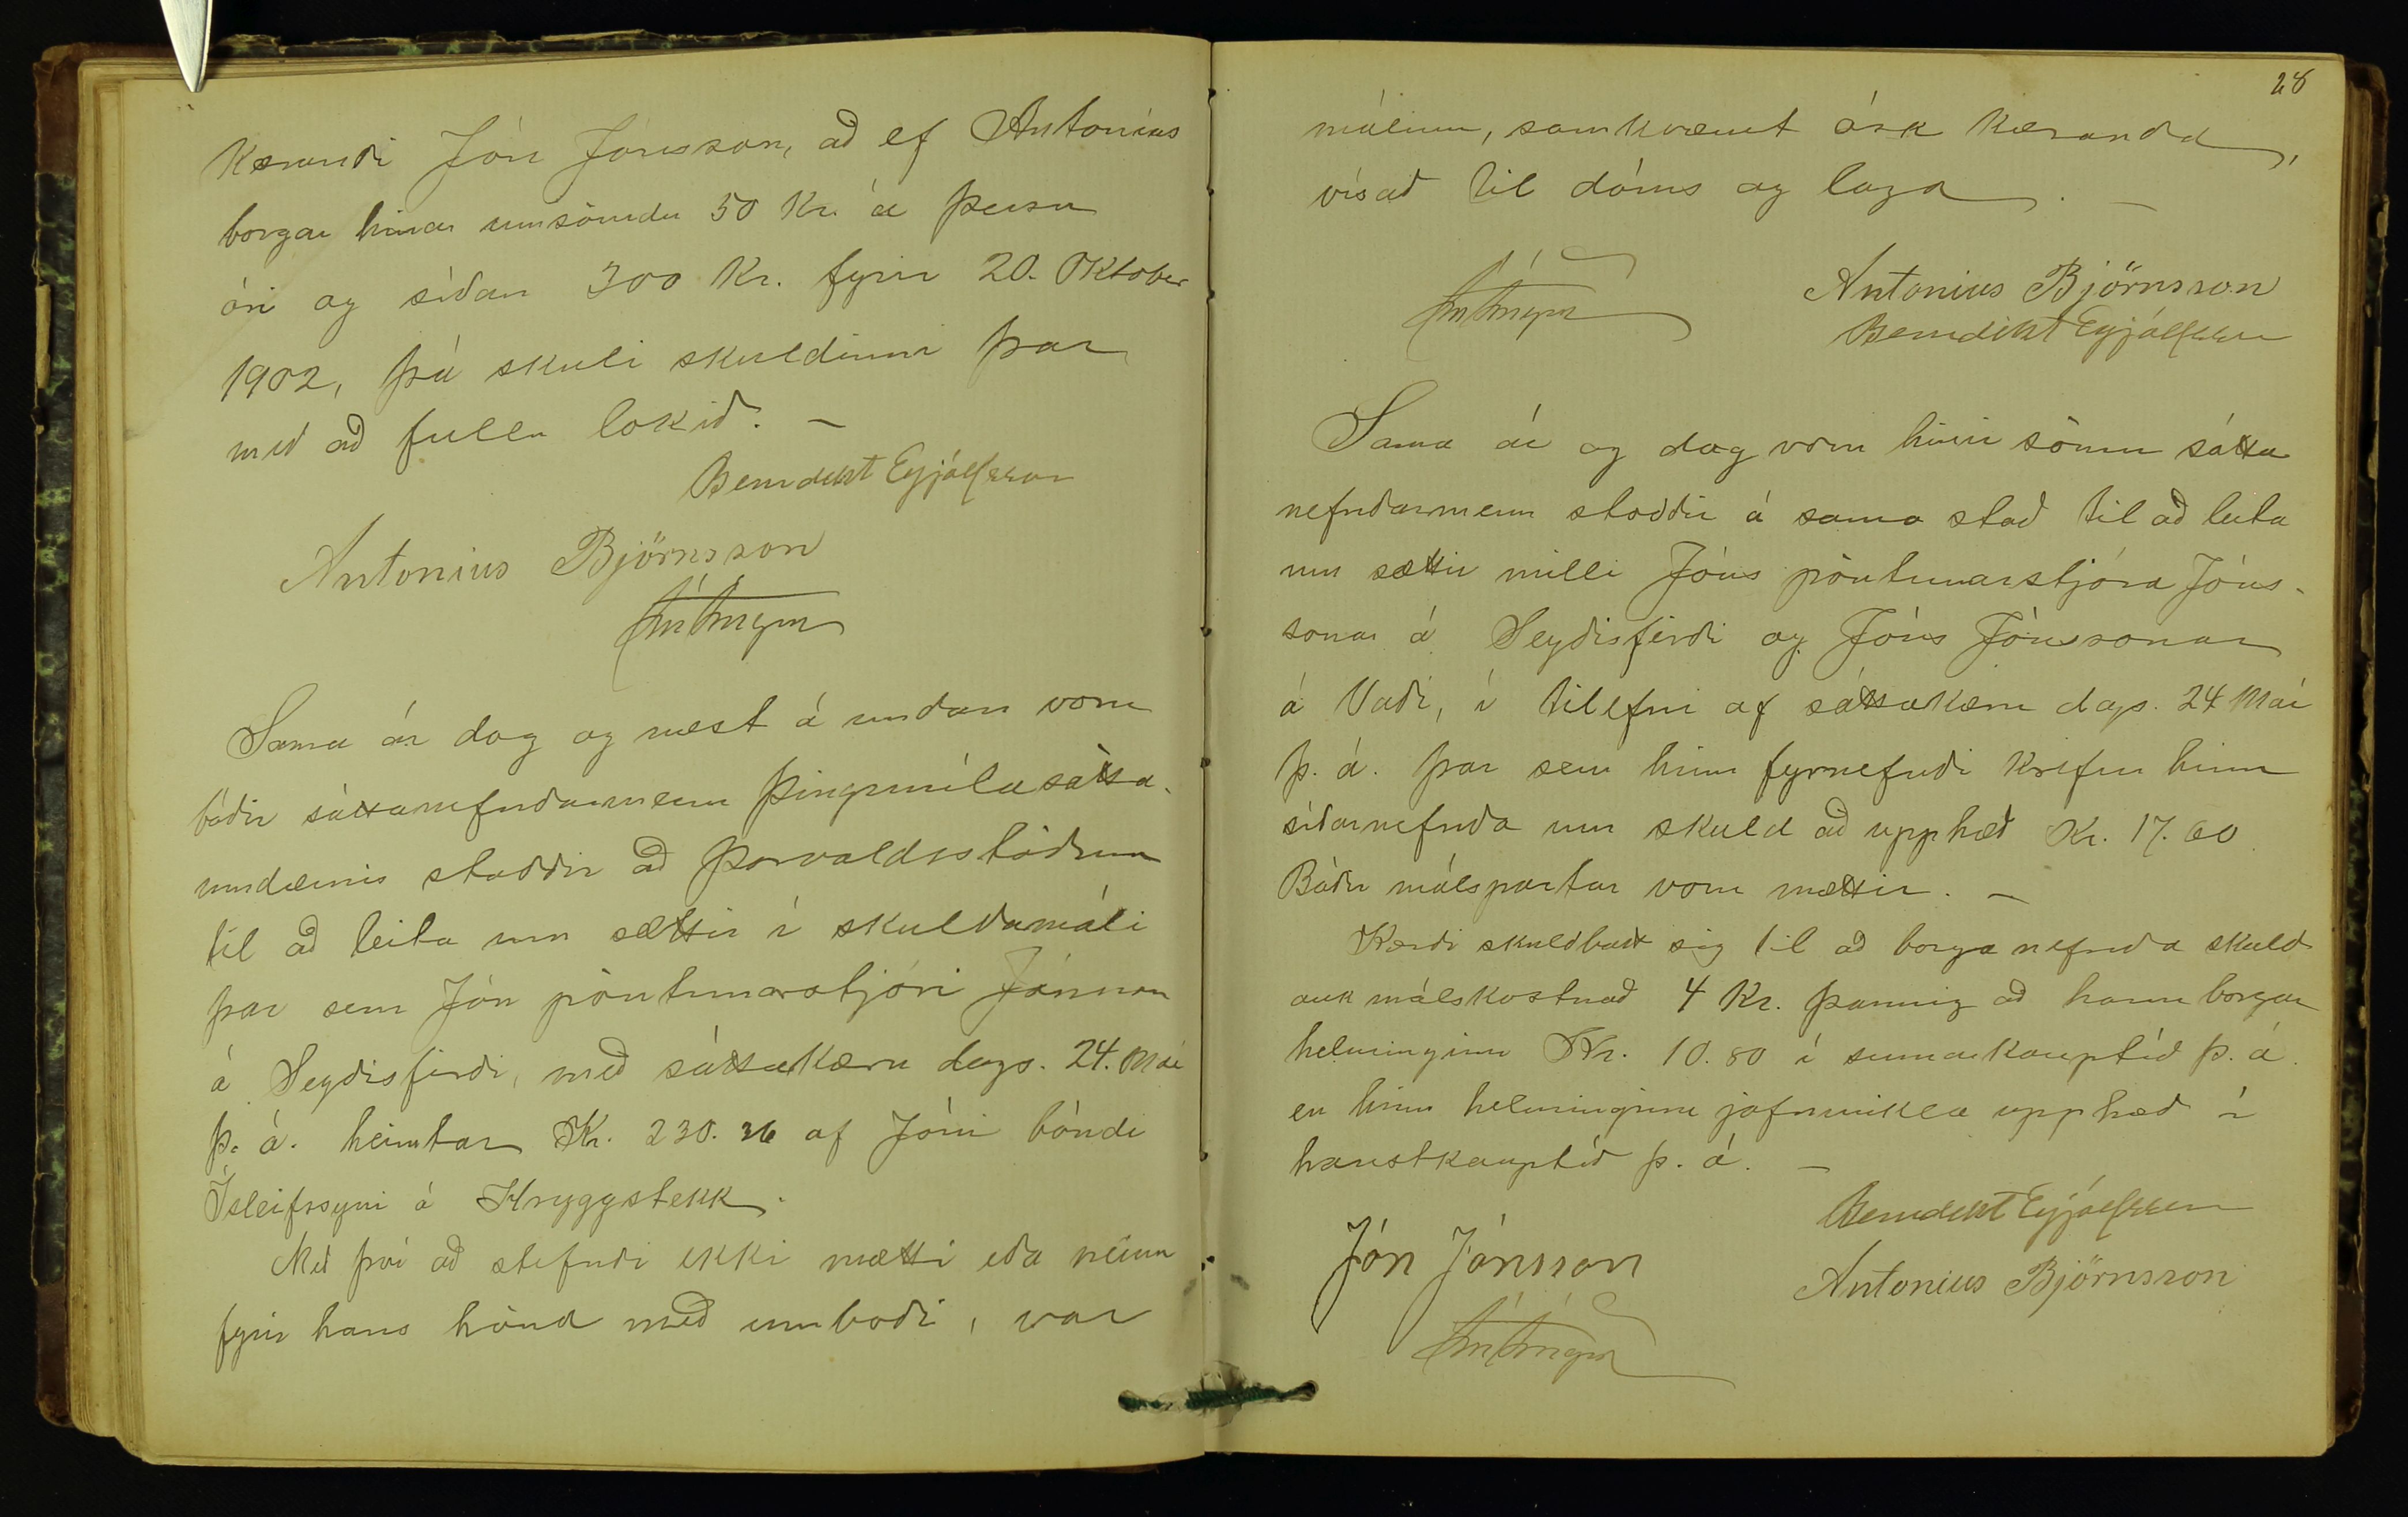 kærandi Jón Jónsson, að ef Antoníus
borgar hinar umsömdu 50 Kr. á þessu
ári og síðan 300 Kr. fyrir 20. Oktober
1902, þá skuli skuldinni þar
með að fullu lokið. –
Benedikt Eyjólfsson
Antonius Björnsson
Sama ár dag og næst á undan voru
báðir sáttanefndarmenn Þingmúlasátta-
umdæmis staddir að Þorvaldsstöðum
til að leita um sættir í skuldamáli
þar sem Jón pöntunarstjóri Jónsson
á Seyðisfirði, með sáttakæru dags. 24. Mai
þ. á. heimtar Kr. 230.36 af Jóni bónda
Ísleifssyni á Hryggstekk.
Með því að stefndi ekki mætti eða neinn
fyrir hans hönd með umboði, var
28
málinu, samkvæmt ósk kæranda,
vísað til dóms og laga. –
Antonius Björnsson
Benedikt Eyjólfsson
Sama ár og dag voru hinir sömu sátta
nefndarmenn staddir á sama stað til að leita
um sættir milli Jóns pöntunarstjóra Jóns-
sonar á Seyðisfirði og Jóns Jónssonar
á Vaði, í tilefni af sáttakæru dags. 24 Mai
þ. á. þar sem hinn fyrnefndi krefur hinn
síðarnefnda um skuld að upphæð Kr. 17.60
Báðir málspartar voru mættir. –
Kærði skuldbatt sig til að borga nefnda skuld
auk málskostnað 4 Kr. þannig að hann borgar
helminginn Kr. 10.80 í sumarkauptíð þ. á.
en hinn helminginn jafnmikla upphæð í
haustkauptíð þ. á. –
Benedikt Eyjólfsson
Jón Jónsson
Antonius Björnsson